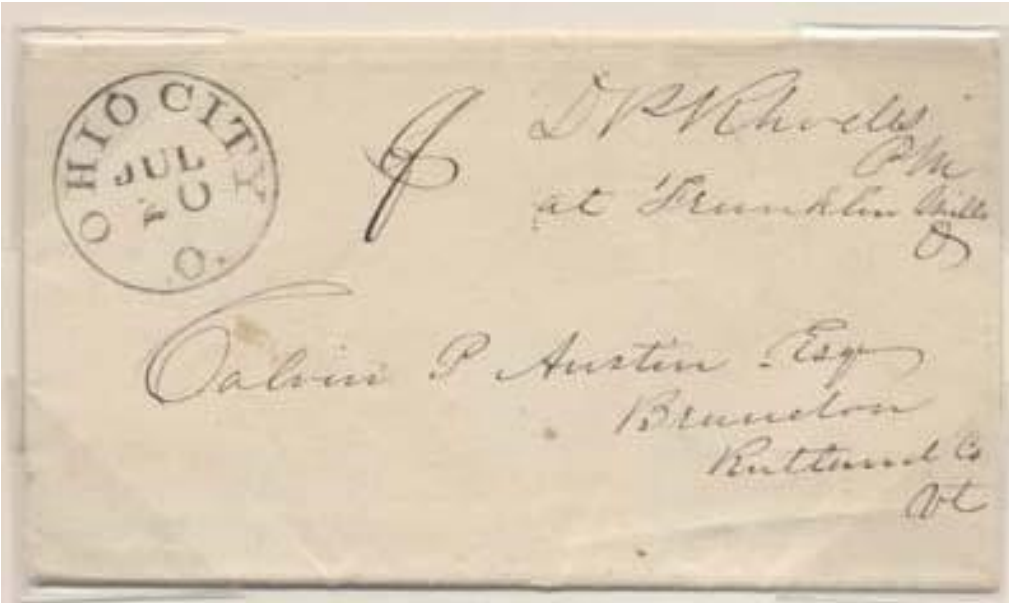 OHIO CITY
JUL
20
O.
D P Rhodes
P M
at Franklin Mills
O
Calvin P Austin Esq
Brandon
Rutland Co
Vt